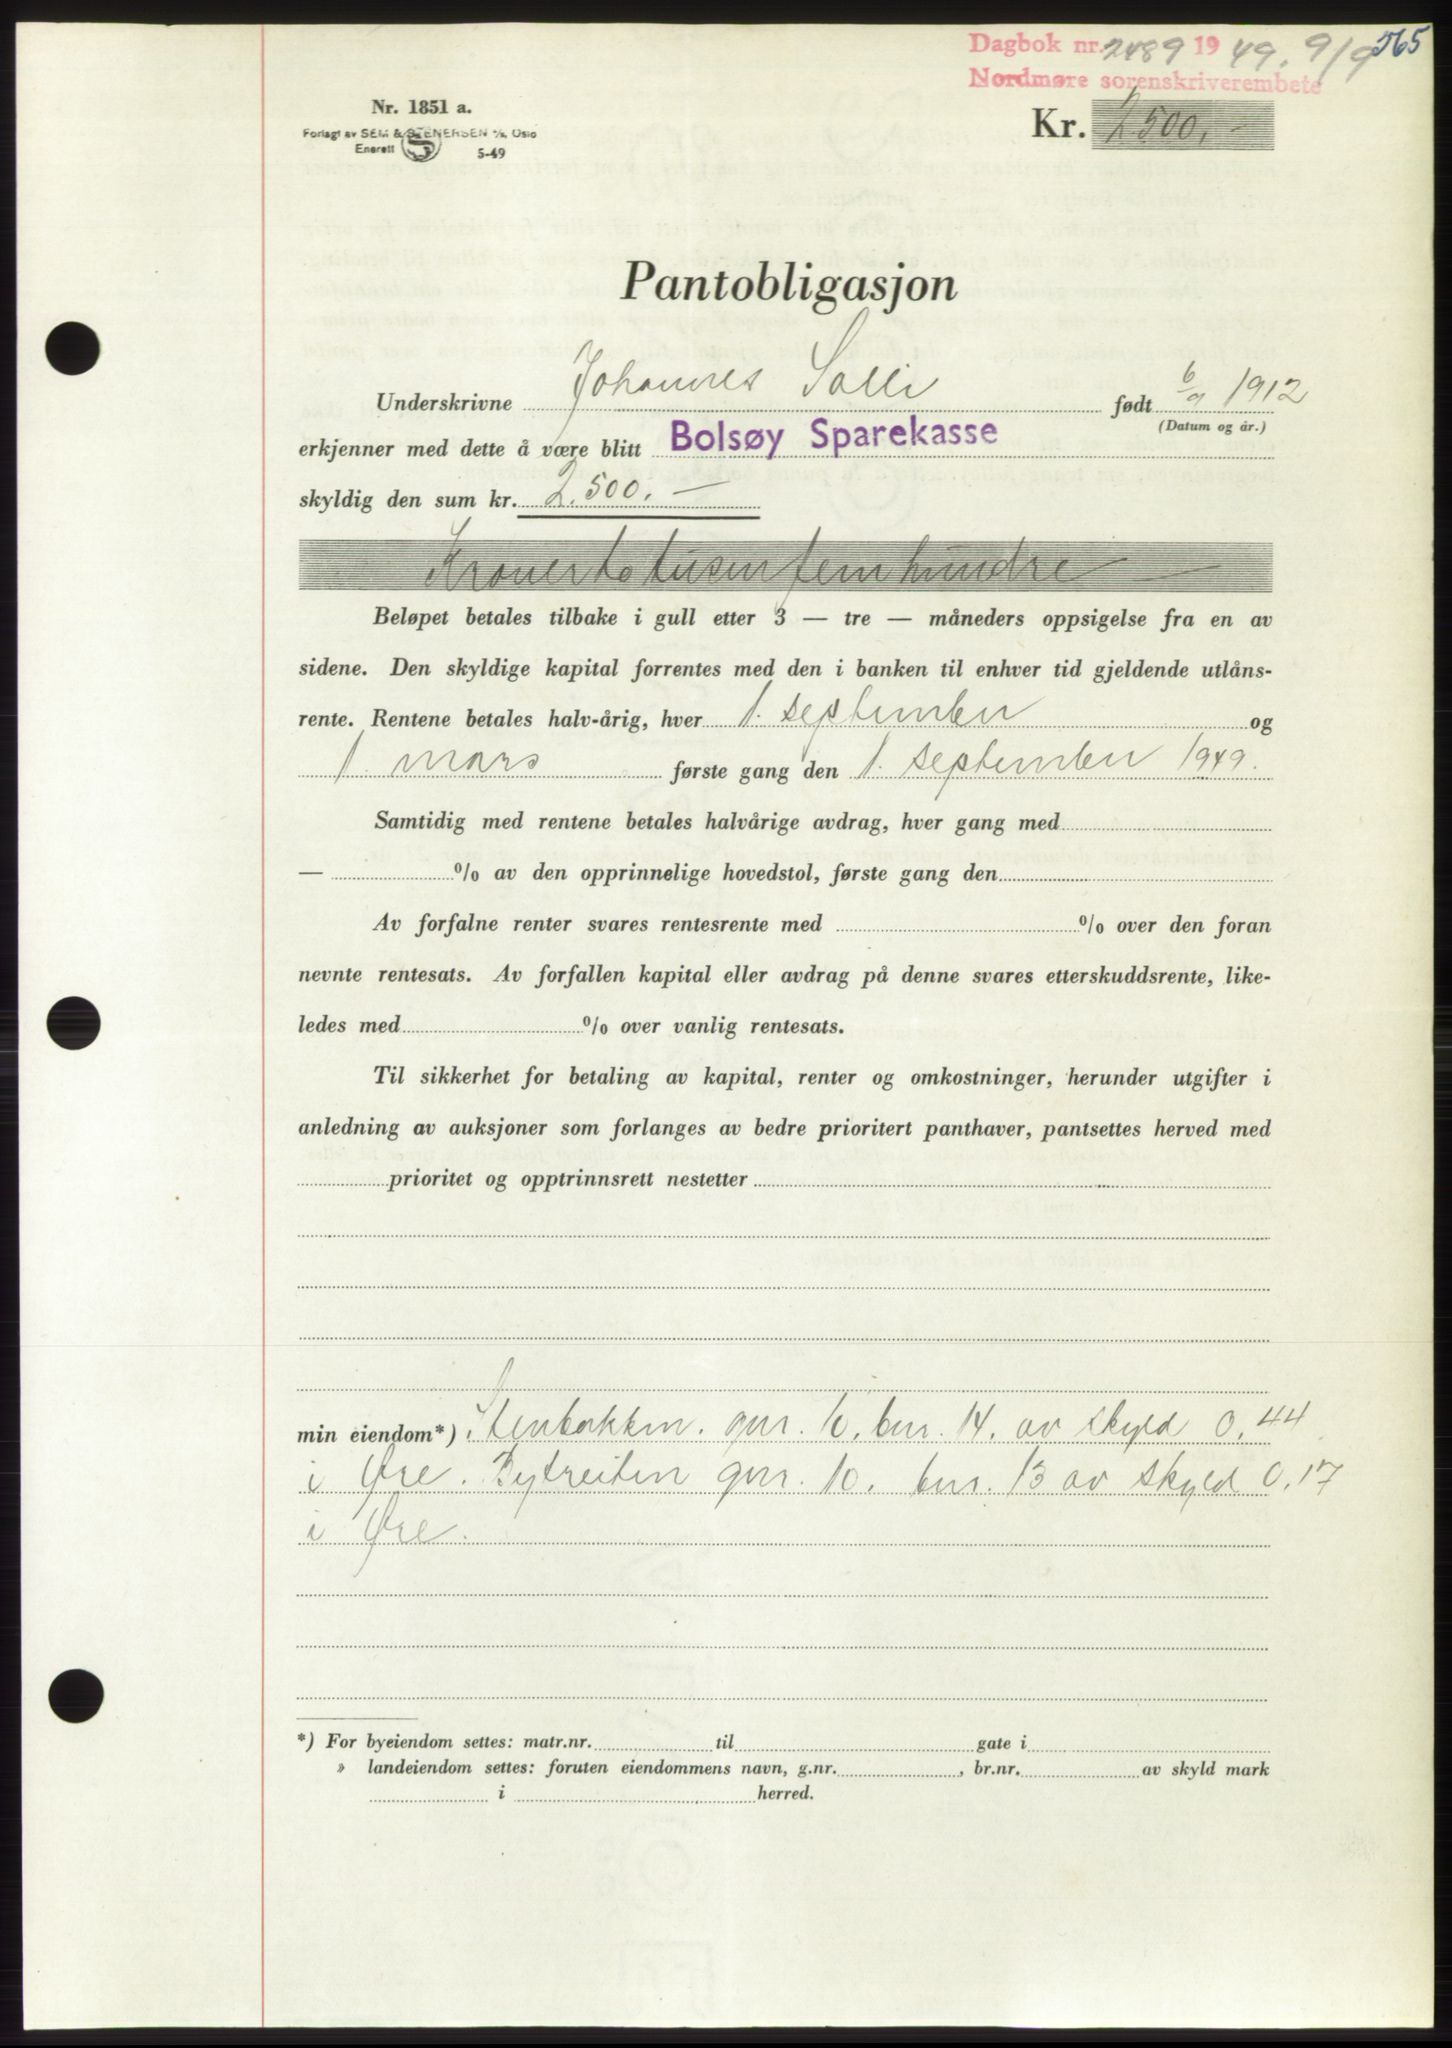 Dagbok nr. 2489 1949. 9/9 565
Nordmøre sorenskriverembete
Nr. 1851 a.
Forlagt av SEM & STENERSEN A/s, Oslo
Enerett 5-49
Kr. 2500,-
Pantobligasjon
Underskrivne Johannes Solli født 6/9 1912
(Datum og år.)
erkjenner med dette å være blitt Bolsøy Sparekasse
skyldig den sum kr. 2.500.-
Kronertotusenfemhundre
Beløpet betales tilbake i gull etter 3 — tre — måneders oppsigelse fra en av
sidene. Den skyldige kapital forrentes med den i banken til enhver tid gjeldende utlåns-
rente. Rentene betales halv-årig, hver 1. september og
1. mars første gang den 1. september 1949.
Samtidig med rentene betales halvårige avdrag, hver gang med
— % av den opprinnelige hovedstol, første gang den
Av forfalne renter svares rentesrente med % over den foran
nevnte rentesats. Av forfallen kapital eller avdrag på denne svares etterskuddsrente, like-
ledes med % over vanlig rentesats.
Til sikkerhet for betaling av kapital, renter og omkostninger, herunder utgifter i
anledning av auksjoner som forlanges av bedre prioritert panthaver, pantsettes herved med
prioritet og opptrinnsrett nestetter
min eiendom*) Stenbakken. gnr. 10, bnr. 14. av skyld 0,44
i Øre. Bytreiten gnr. 10. bnr. 13 av skyld 0,17
i Øre.
*) For byeiendom settes: matr.nr. til gate i
» landeiendom settes: foruten eiendommens navn, g.nr. , br.nr. av skyld mark
i herred.